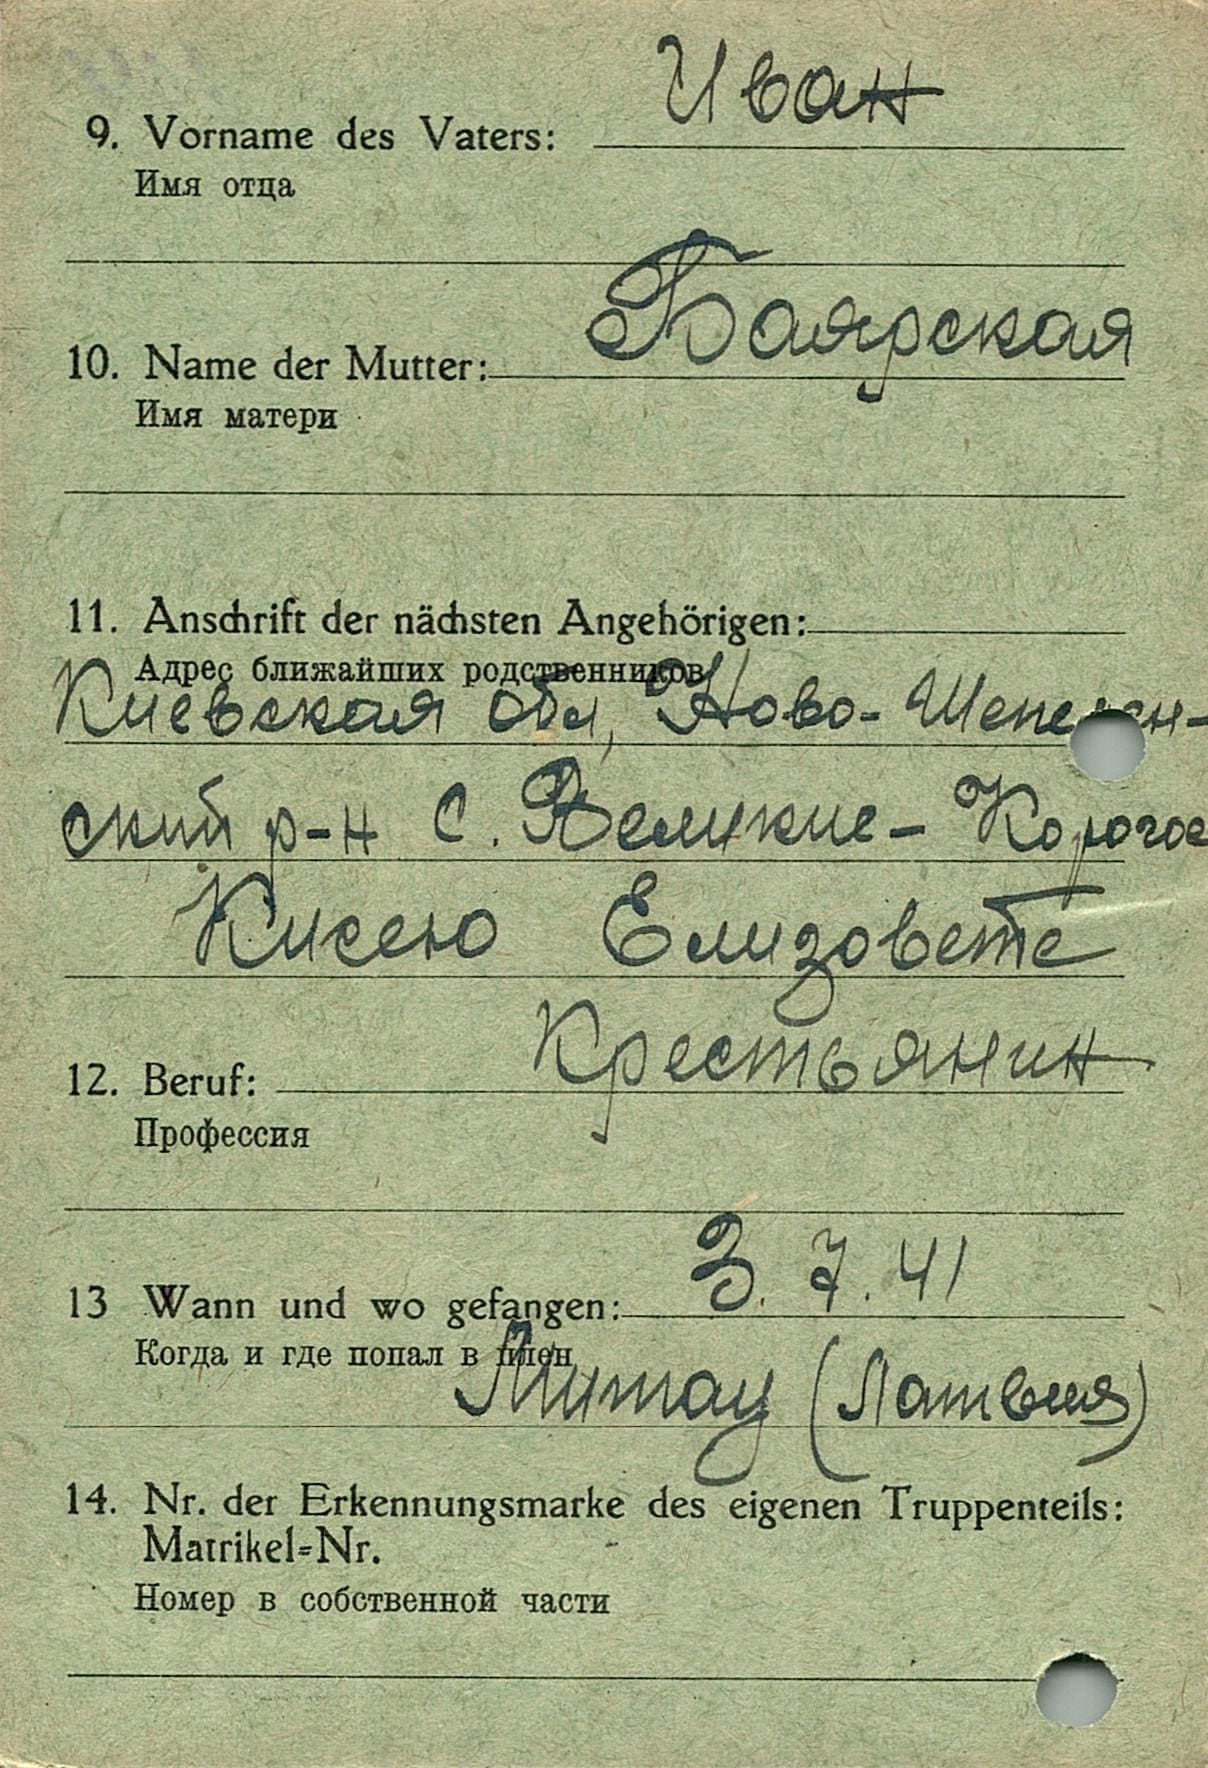 Иван
9. Vorname des Vaters:
Имя отца
Боярская
10. Name der Mutter:
Имя матери
11. Anschrift der nächsten Angehörigen:
Адрес ближайших родственников
Киевская обл, Ново-Шепелен-
ский р-н с. Великие-Корогое
Кисею Елизовете
Крестьянин
12. Beruf:
Профессия
3.7.41
13 Wann und wo gefangen:
Когда и где попал в плен
Митау (Латвия)
14. Nr. der Erkennungsmarke des eigenen Truppenteils:
Matrikel-Nr.
Номер в собственной части